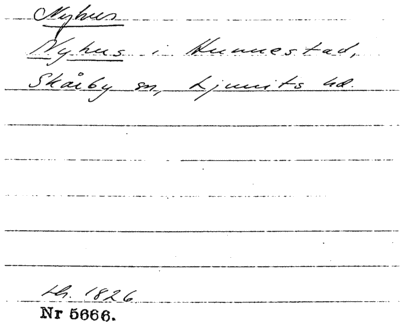 Nyhus
Nyhus i Hunnestad,
Skårby sn, Ljunits hd.
th. 1826
Nr 5666.